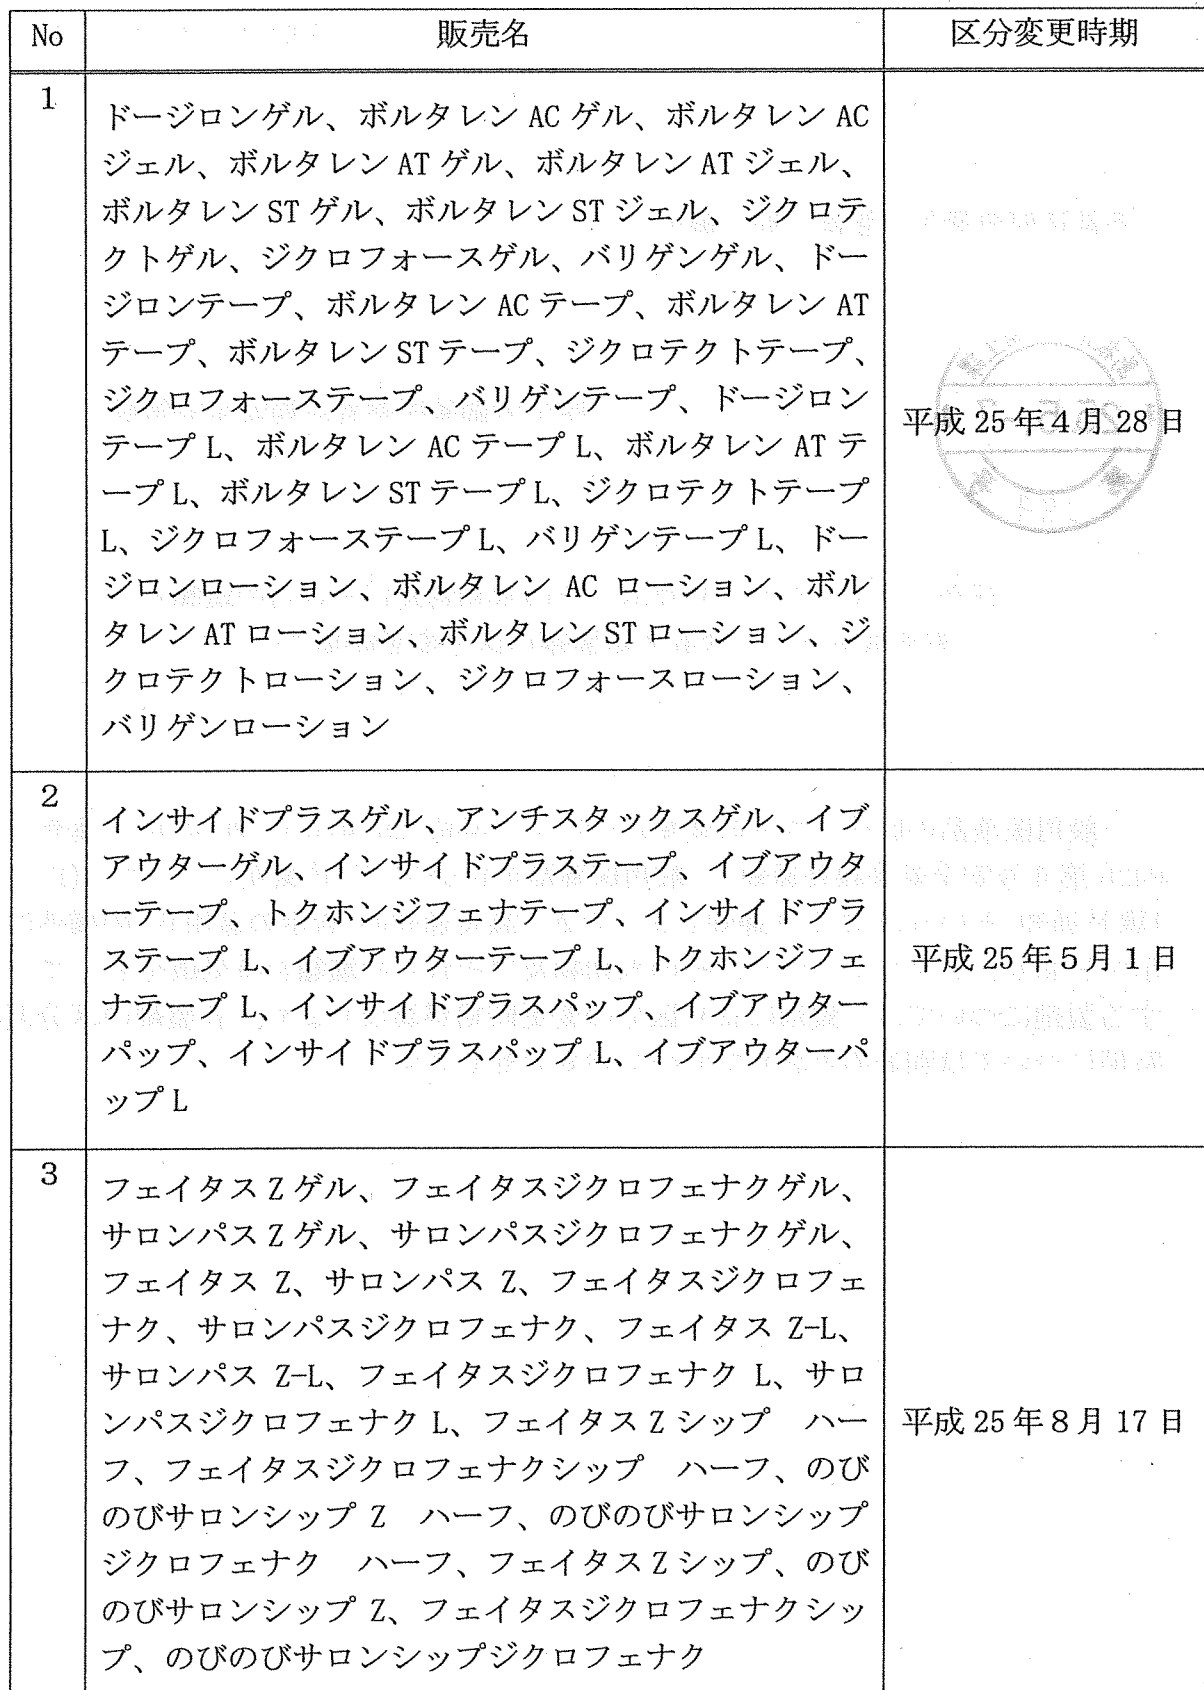 No 販売名 区分変更時期
1
ドージロンゲル、ボルタレン AC ゲル、ボルタレン AC
ジェル、ボルタレン AT ゲル、ボルタレン AT ジェル、
ボルタレン ST ゲル、ボルタレン ST ジェル、ジクロテ
クトゲル、ジクロフォースゲル、バリゲンゲル、ドー
ジロンテープ、ボルタレン AC テープ、ボルタレン AT
テープ、ボルタレン ST テープ、ジクロテクトテープ、
ジクロフォーステープ、バリゲンテープ、ドージロン
テープ L、ボルタレン AC テープ L、ボルタレン AT テ
ープ L、ボルタレン ST テープ L、ジクロテクトテープ
L、ジクロフォーステープ L、バリゲンテープ L、ドー
ジロンローション、ボルタレン AC ローション、ボル
タレン AT ローション、ボルタレン ST ローション、ジ
クロテクトローション、ジクロフォースローション、
バリゲンローション
平成 25 年 4 月 28 日
2
インサイドプラスゲル、アンチスタックスゲル、イブ
アウターゲル、インサイドプラステープ、イブアウタ
ーテープ、トクホンジフェナテープ、インサイドプラ
ステープ L、イブアウターテープ L、トクホンジフェ
ナテープ L、インサイドプラスパップ、イブアウター
パップ、インサイドプラスパップ L、イブアウターパ
ップ L
平成 25 年 5 月 1 日
3
フェイタス Z ゲル、フェイタスジクロフェナクゲル、
サロンパス Z ゲル、サロンパスジクロフェナクゲル、
フェイタス Z、サロンパス Z、フェイタスジクロフェ
ナク、サロンパスジクロフェナク、フェイタス Z-L、
サロンパス Z-L、フェイタスジクロフェナク L、サロ
ンパスジクロフェナク L、フェイタス Z シップ　ハー
フ、フェイタスジクロフェナクシップ　ハーフ、のび
のびサロンシップ Z　ハーフ、のびのびサロンシップ
ジクロフェナク　ハーフ、フェイタス Z シップ、のび
のびサロンシップ Z、フェイタスジクロフェナクシッ
プ、のびのびサロンシップジクロフェナク
平成 25 年 8 月 17 日